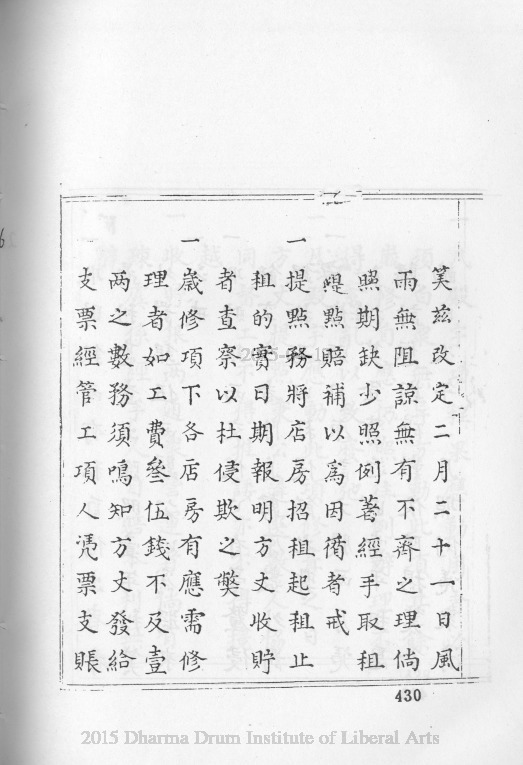 笑茲改定二月二十一日風
雨無阻諒無有不齊之理倘
照期缺少照例著經手取租
提點賠補以為因循者戒
一提點務將店房招租起租止
租的實日期報明方丈收貯
者查察以杜侵欺之獘
一歲修項下各店房有應需修
理者如工費叄伍錢不及壹
两之數務須鳴知方丈發給
支票經管工項人凴票支賬
430
2015 Dharma Drum Institute of Liberal Arts